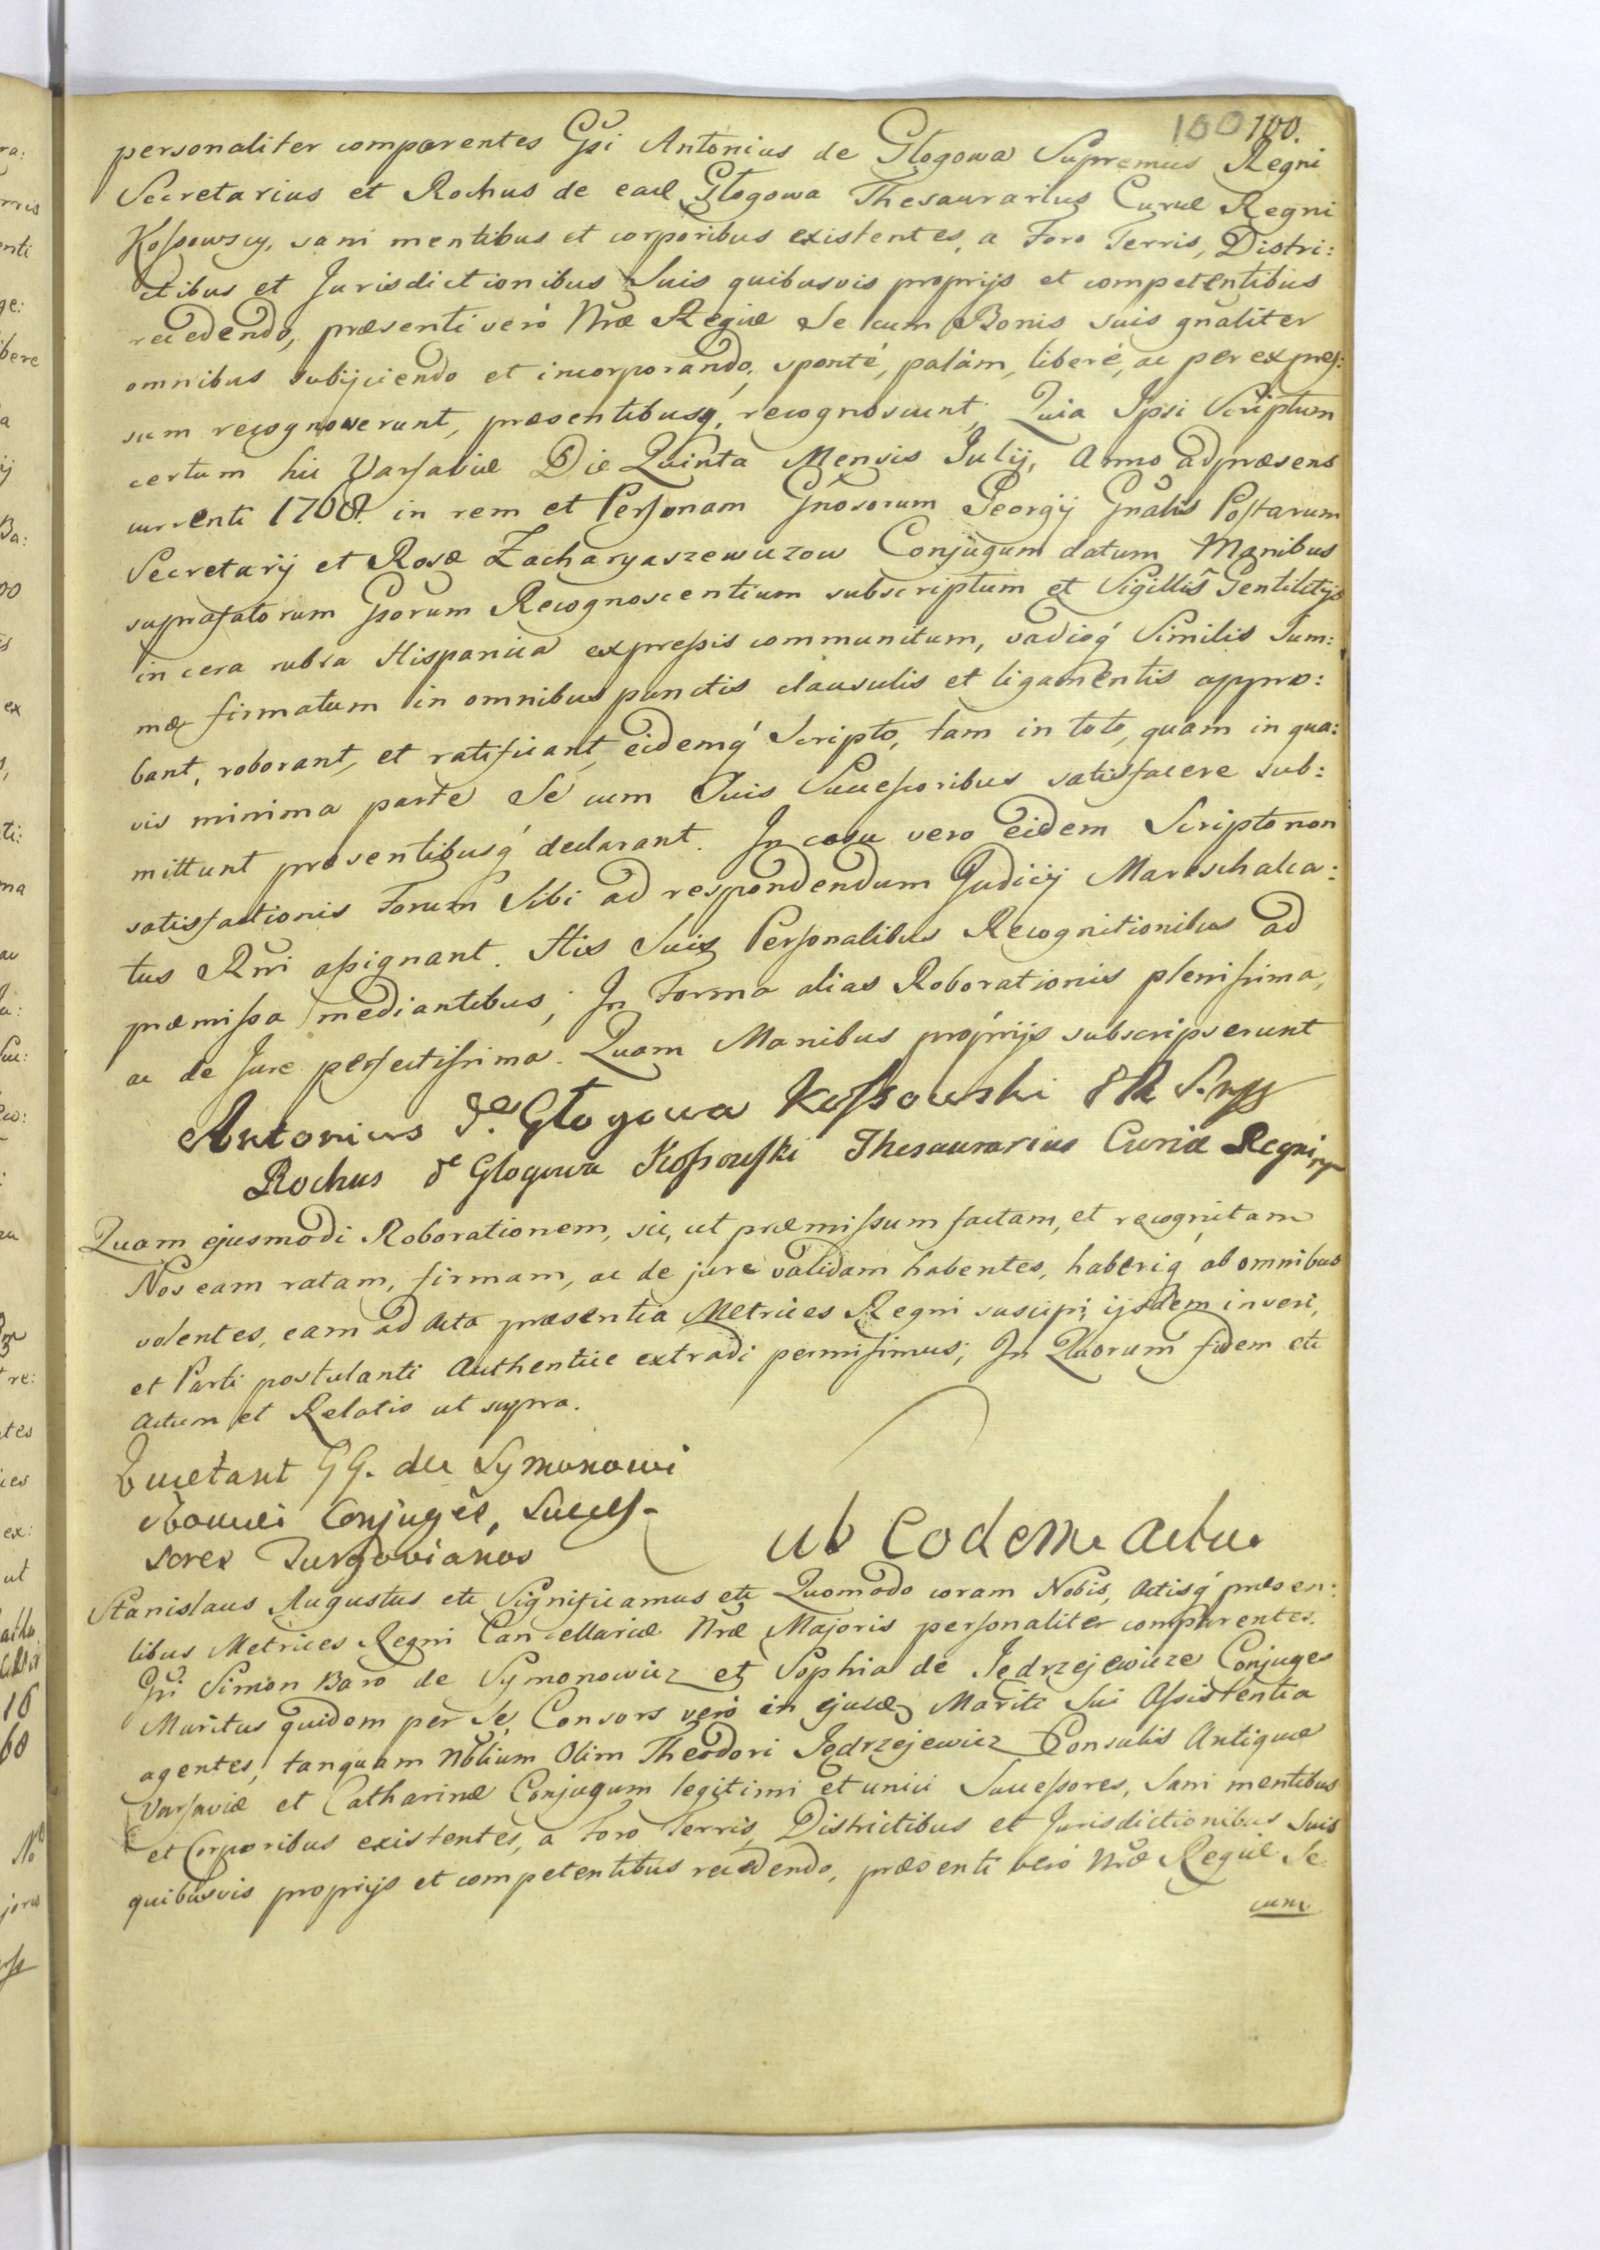 100 100.
personaliter comparentes Gsi Antonius de Głogowa Supremus Regni
Secretarius et Rochus de ead Głogowa Thesaurarius Curiæ Regni
Kossowscy, sani mentibus et corporibus existentes, a Foro Terris, Distri:
ctibus et Jurisdictionibus Suis quibusvis proprijs et competentibus
recedendo, præsenti verò Nræ Regiæ Se cum Bonis suis gnaliter
omnibus subijciendo et incorporando, sponté, palàm, liberé, ac per expres:
sum recognoverunt, præsentibusq, recognoscunt; Quia Ipsi Scriptum
certum hic Varsaviæ Die Quinta Mensis Julij, Anno ad præsens
currenti 1768. in rem et Personam Gnosorum Georgij Gnalis Postarum
Secretarij et Rosæ Zacharyaszewiczow Conjugum datum Manibus
suprafatorum Gsorum Recognoscentium subscriptum et Sigillis Gentilitijs
in cera rubra Hispanica expressis communitum, vadioq́ Similis Sum:
mæ firmatum in omnibus punctis clausulis et ligamentis appro:
bant, roborant, et ratificant, eidemq́ Scripto, tam in toto, quam in qua:
vis minima parte Se cum Suis Successoribus satisfacere sub:
mittunt præsentibusq́ declarant. In casu vero eidem Scripto non
satisfactionis Forum Sibi ad respondendum Judicij Mareschalca:
tus Rni assignant. His Suis Personalibus Recognitionibus ad
præmissa mediantibus; In Forma alias Roborationis plenissima,
ac de Jure perfectissima. Quam Manibus proprijs subscripserunt
Antonius de Głogowa Kossowski
Rochus de Glogowa Kossowski Thesaurarius Curiæ Regni mp
Quam ejusmodi Roborationem, sic, ut præmissum factam, et recognitam
Nos eam ratam, firmam, ac de jure validam habentes, haberiq ab omnibus
volentes, eam ad Acta præsentia Metrices Regni suscipi, ijsdem inseri,
et Parti postulanti Authentice extradi permisimus; In Quorum fidem etc
Actum et Relatio ut supra.
Quietant GG. de Symonowi
Conjuges, Succes-
sores Jurgovianos
ub Eodem Actu.
Stanislaus Augustus etc Significamus etc Quomodo coram Nobis, Actisq́ præsen:
tibus Metrices Regni Cancellariæ Nræ Majoris personaliter comparentes.
Gsi Simon Baro de Symonowicz et Sophia de Jędrzejewicze Conjuges
Maritus quidem per Se, Consors verò in ejusd Mariti Sui Assistentia
agentes, tanquam Nblium Olim Theodori Jędrzejewicz Consulis Antiquæ
Varsaviæ et Catharinæ Conjugum legitimi et unici Successores, Sani mentibus
et Corporibus existentes, a Foro Terris, Districtibus et Jurisdictionibus Suis
quibusvis proprijs et competentibus recedendo, præsenti verò Nræ Regiæ Se
cum